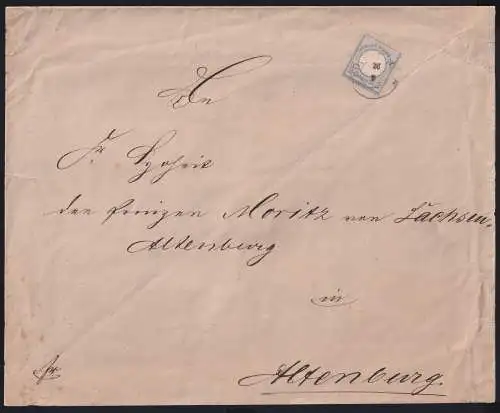 An
Sr. Hoheit
den Prinzen Moritz von Sachsen-
Altenburg
in
fr.
Altenburg.